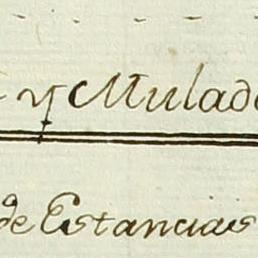 y Mulado
de Estanciais